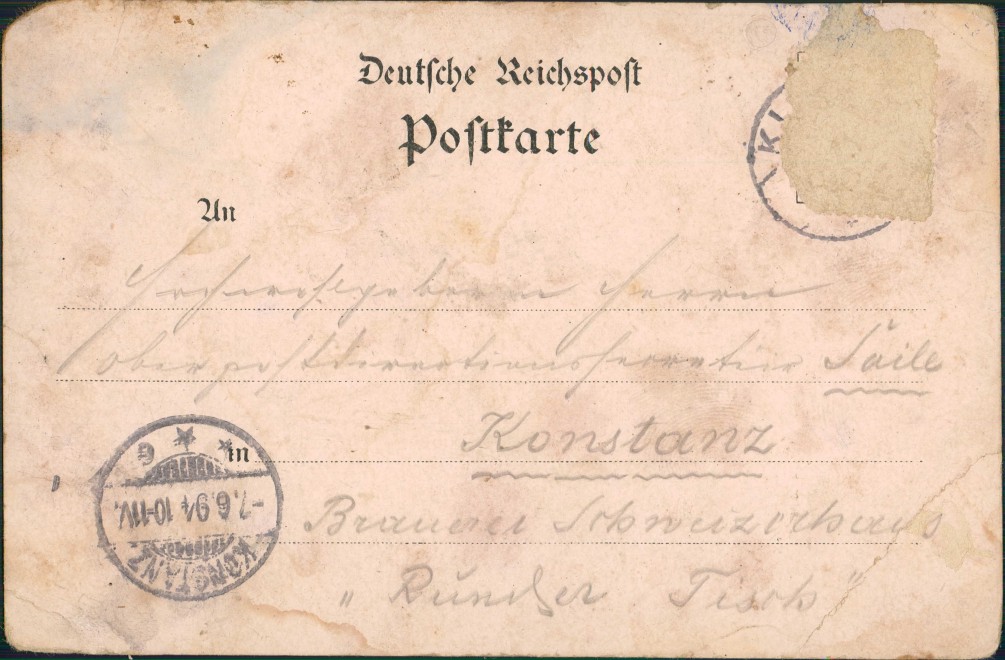 Deutsche Reichspost
Postkarte
KI
An
Hochwohlgeboren Herrn
Oberpostdirectionssecretär Saile
Konstanz
in
Brauerei Schweizerhaus
"Runder Tisch"
KONSTANZ
-7.6.94 10-11V.
* * G